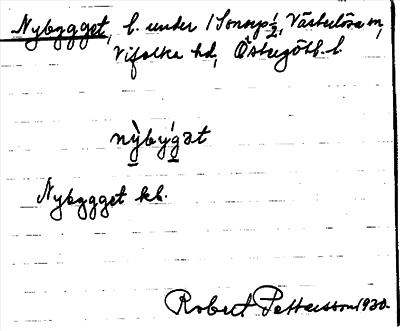 Nybygget, l. under 1 Sonorp 1/2, Västerlösa sn,
Vifolka hd, Östergötl. l.
nỳbýgat
Nybygget kb.
Robert Pettersson 1930.